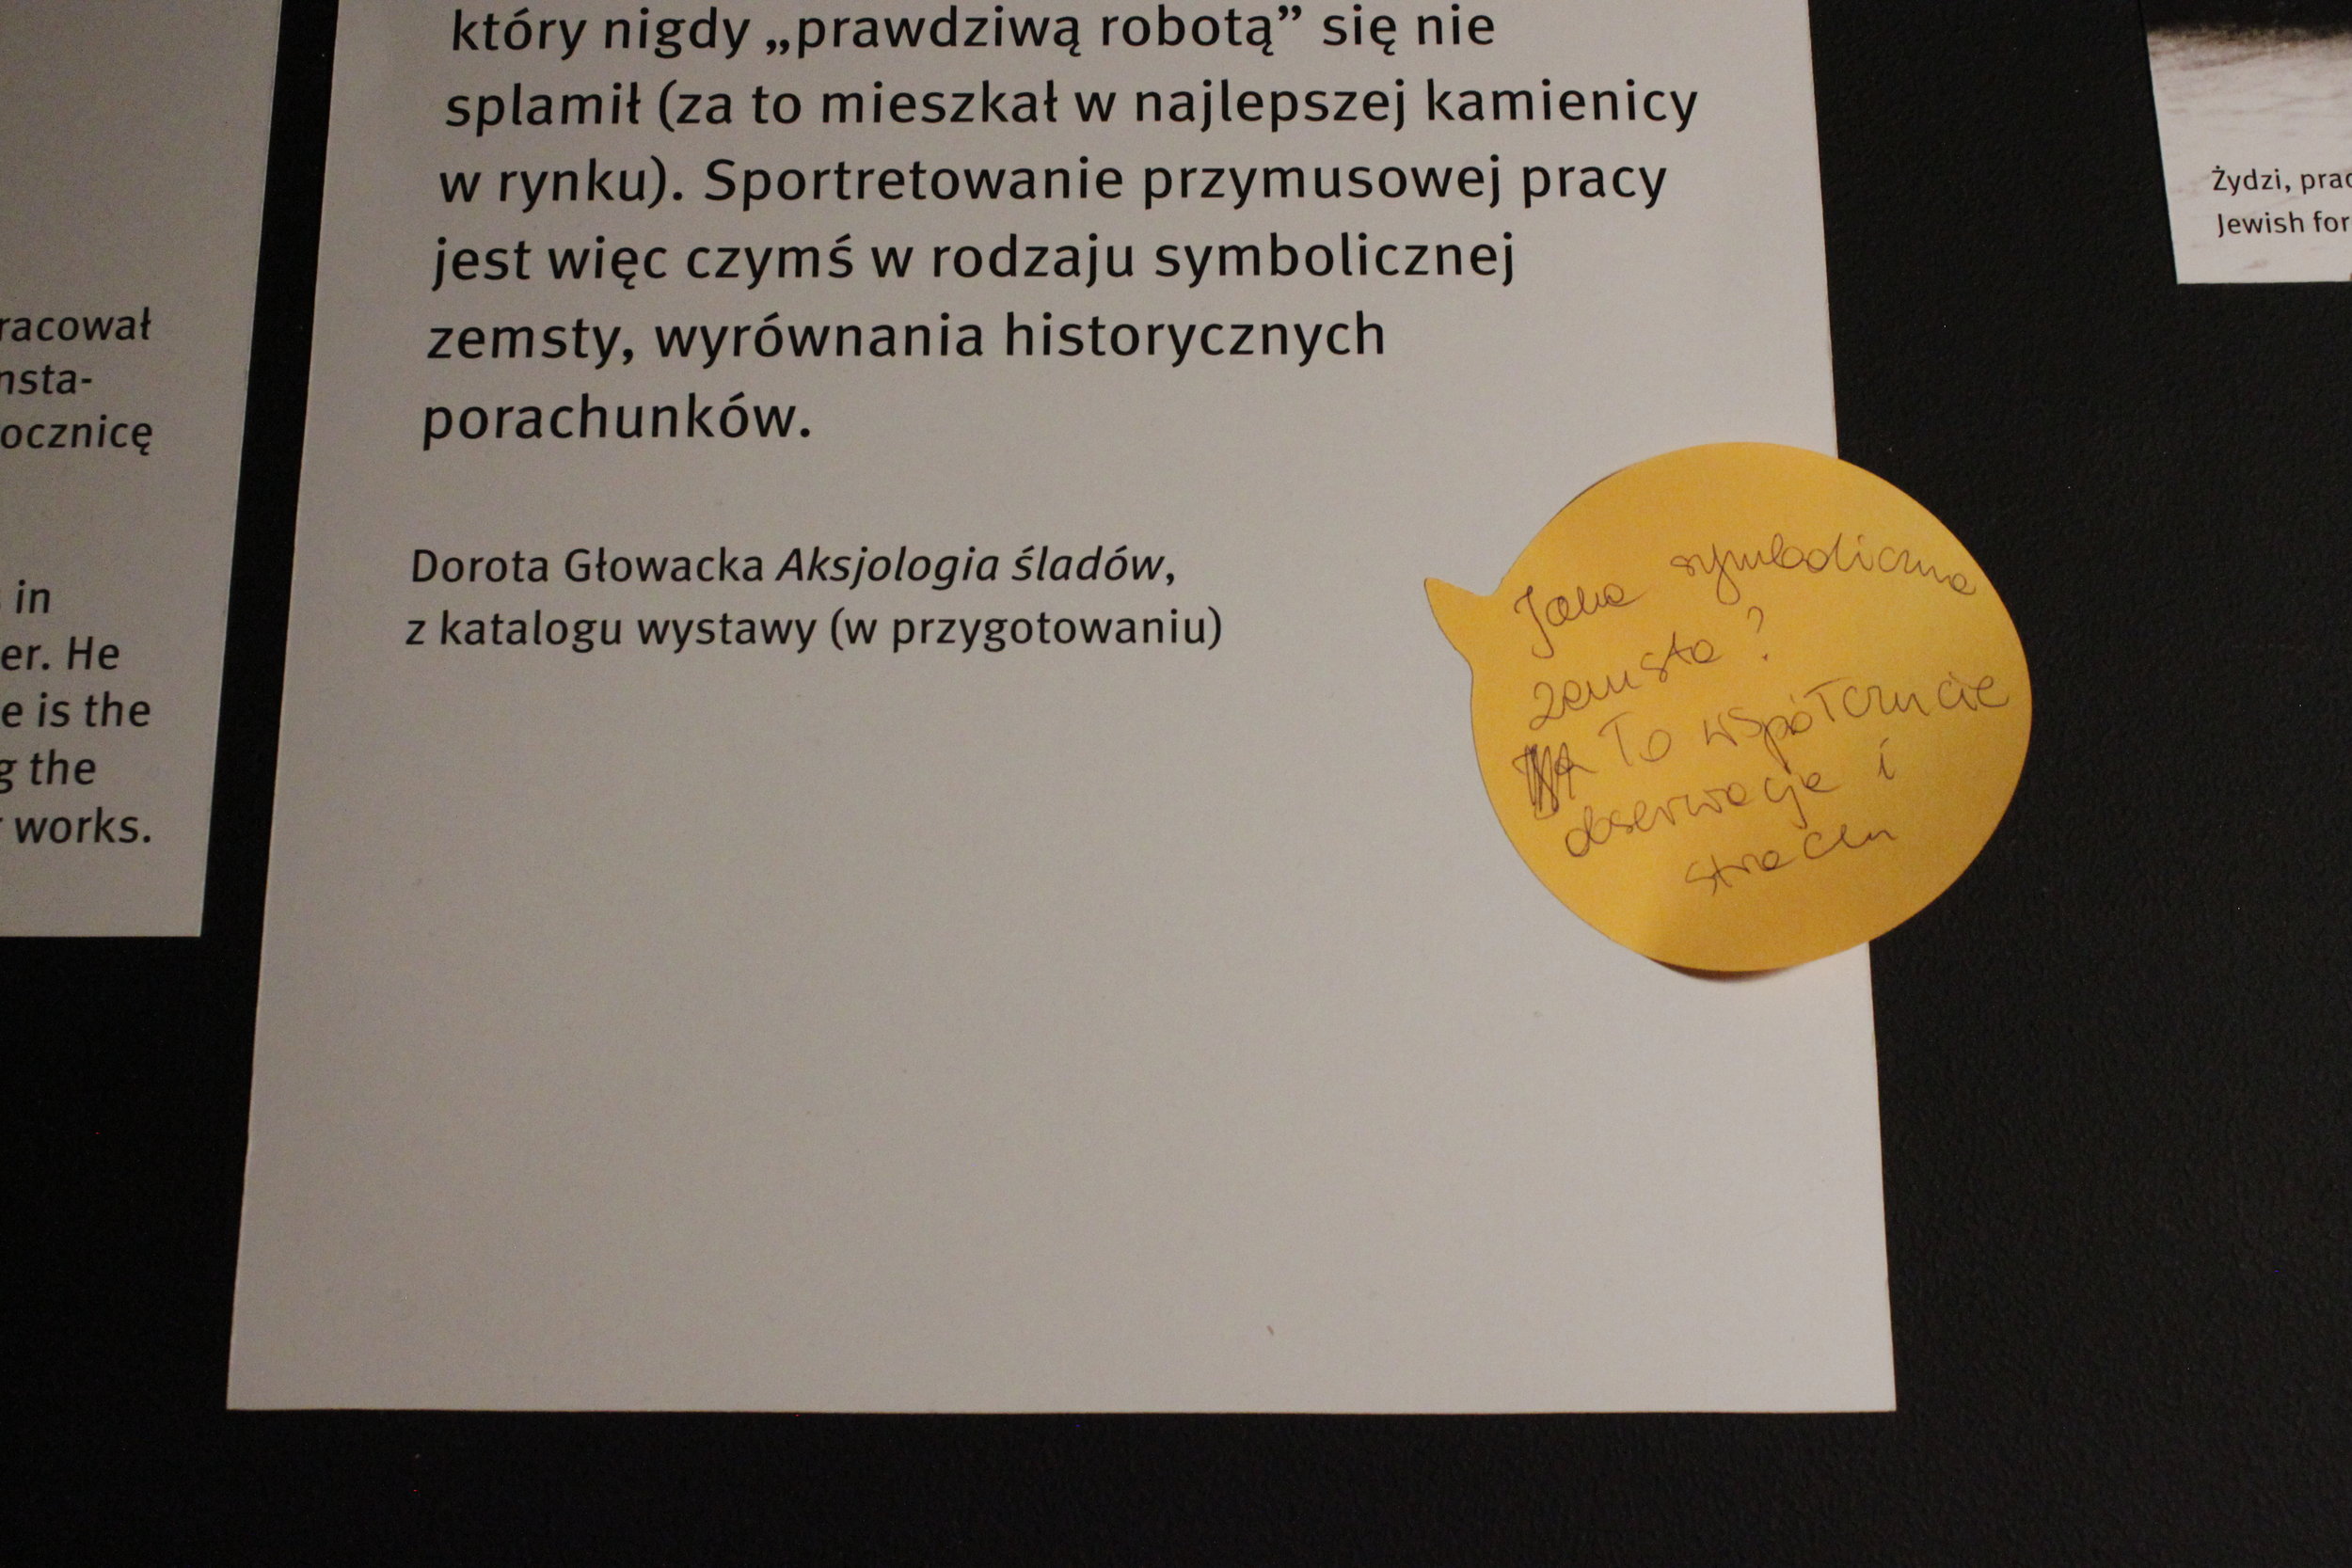 który nigdy „prawdziwą robotą” się nie
splamił (za to mieszkał w najlepszej kamienicy
w rynku). Sportretowanie przymusowej pracy
jest więc czymś w rodzaju symbolicznej
zemsty, wyrównania historycznych
porachunków.
Dorota Głowacka Aksjologia śladów,
z katalogu wystawy (w przygotowaniu)
Jaka symboliczna
zemsta?
To współczucie
obserwacja i
strach
racował
nsta-
ocznicę
in
er. He
e is the
g the
works.
Żydzi, prac
Jewish for